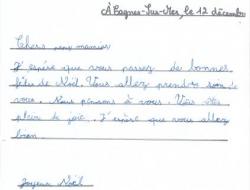 À Cagnes-sur-Mer, le 12 décembre
Chers
J'espère que vous passez de bonnes
fêtes de Noël. Vous allez prendre soin de
vous. Nous pensons à vous. Vous êtes
plein de joie. J'espère que vous allez
bien.
Joyeux Noël